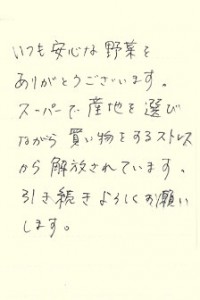 いつも安心な野菜を
ありがとうございます。
スーパーで産地を選び
ながら買い物をするストレス
から解放されています。
引き続きよろしくお願い
します。